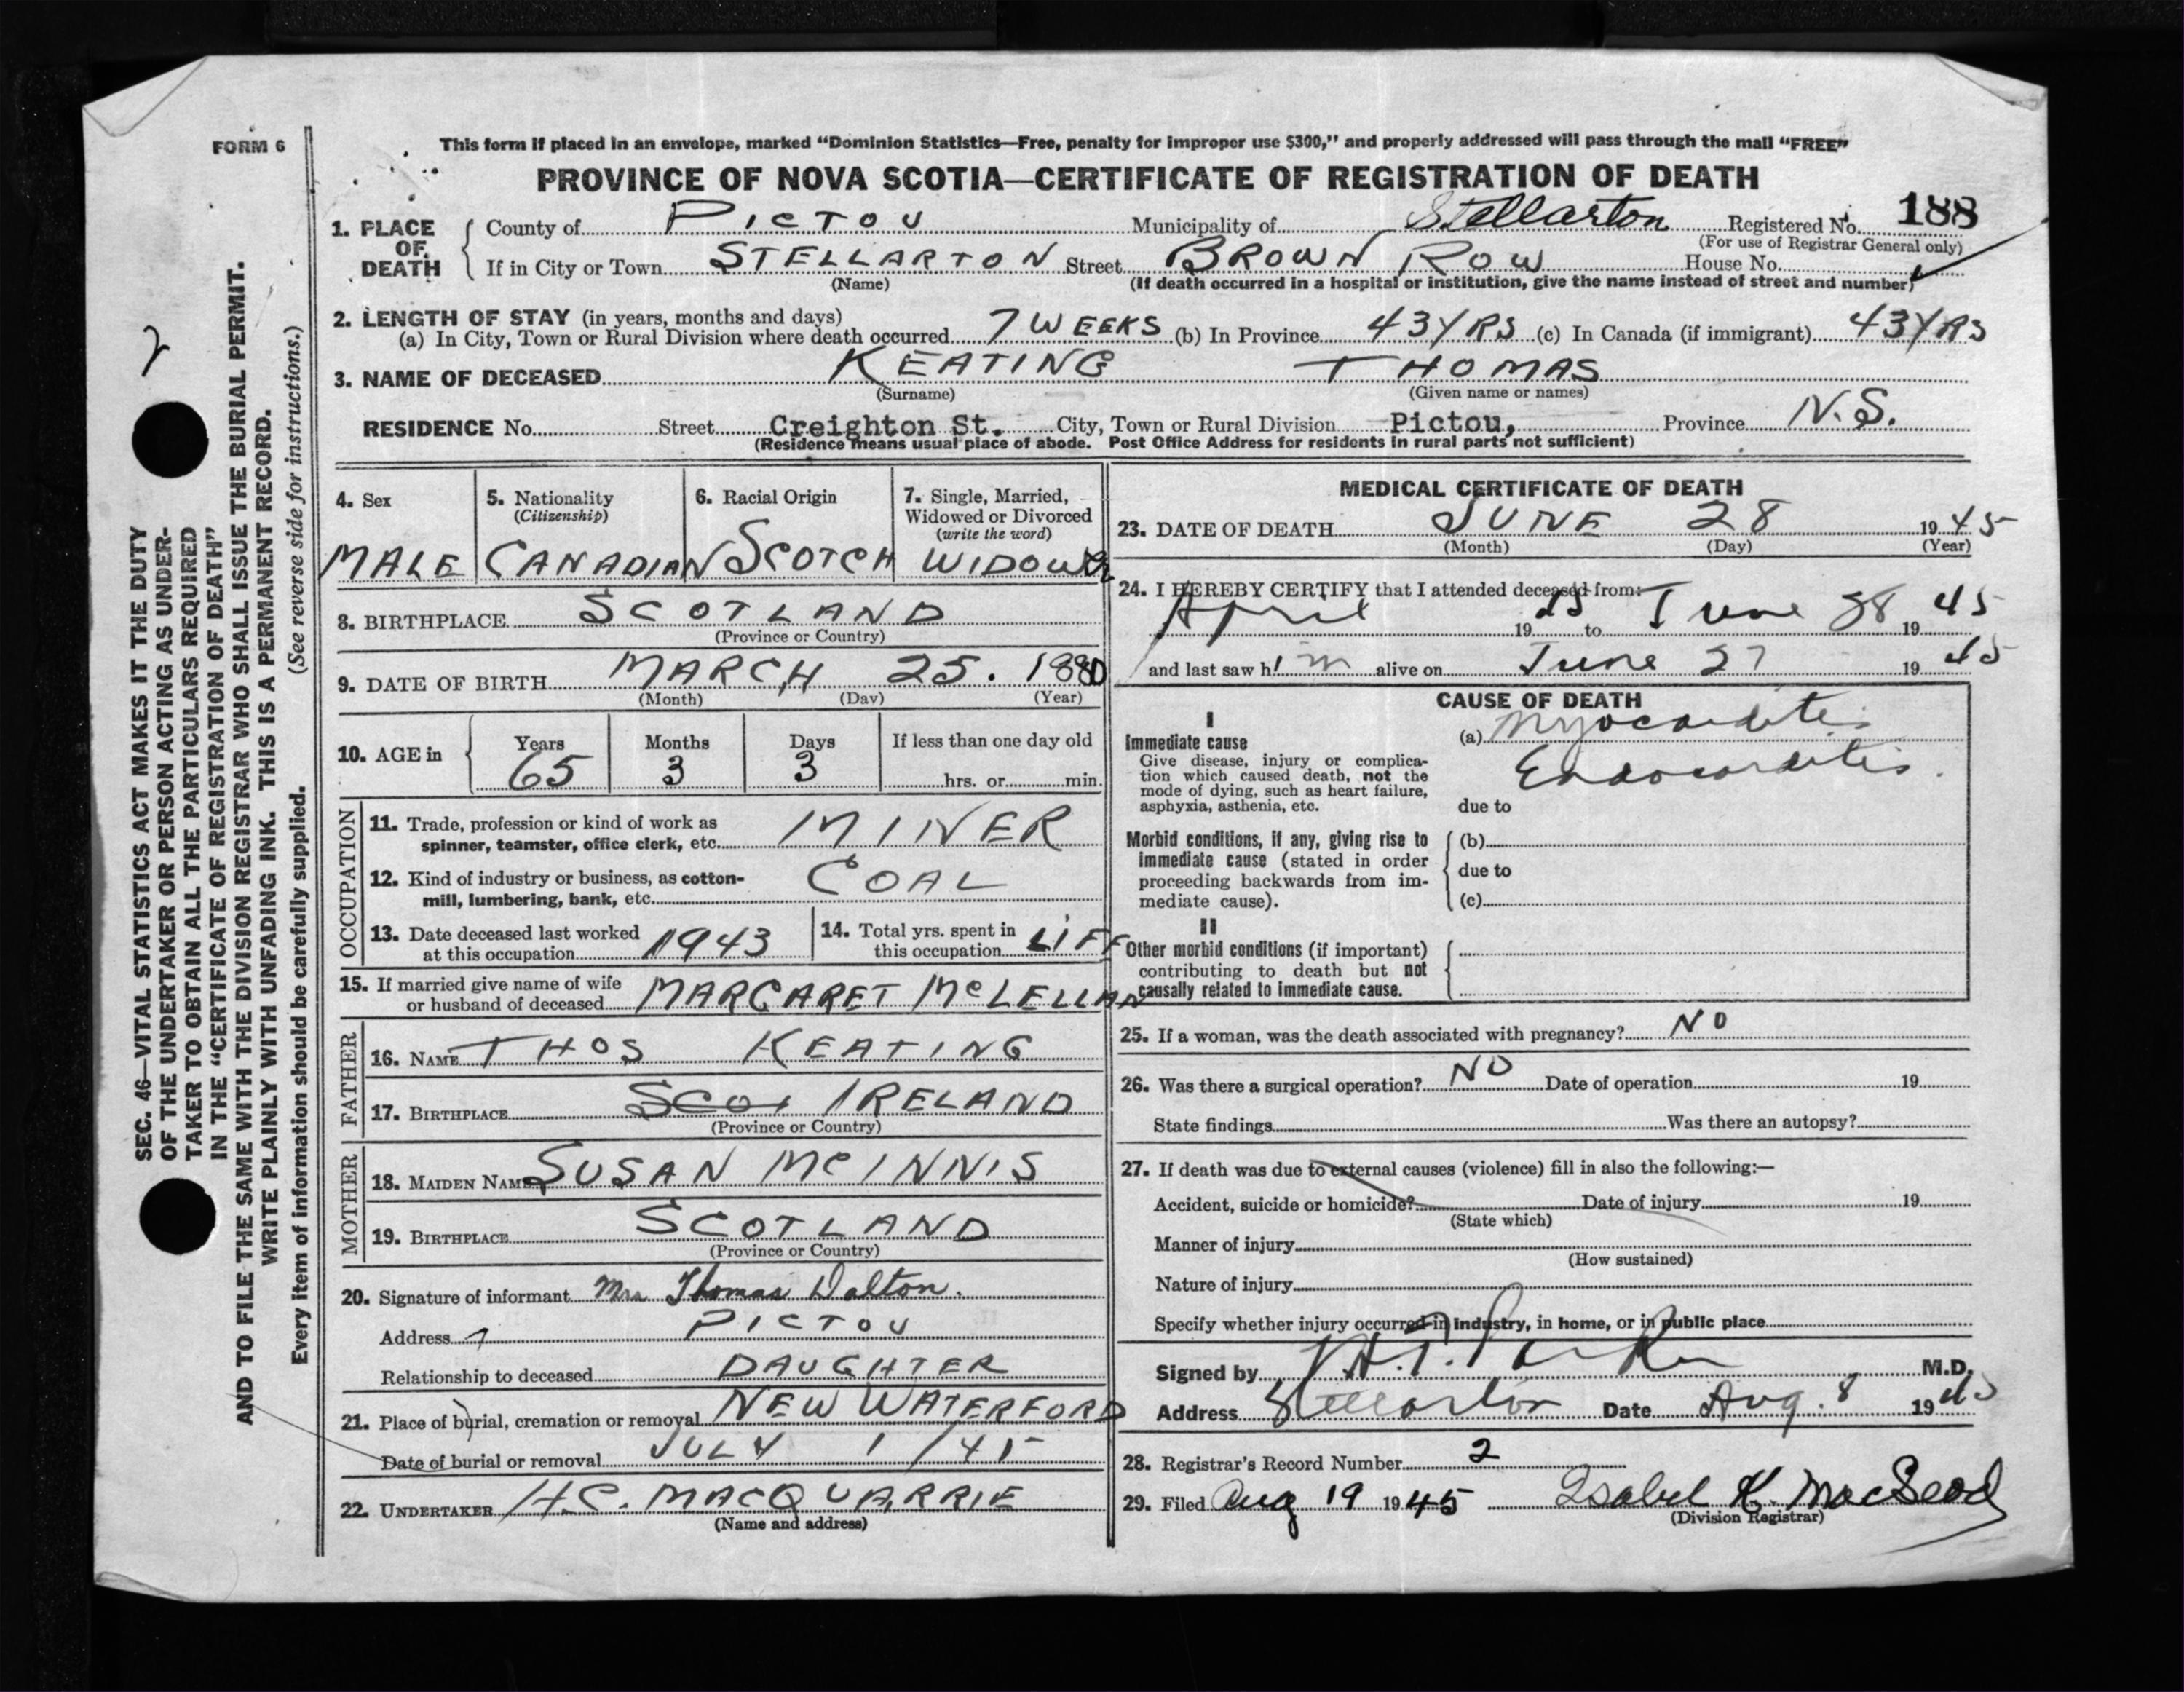 FORM 6
This form if placed in an envelope, marked “Dominion Statistics—Free, penalty for improper use $300,” and properly addressed will pass through the mail “FREE”
PROVINCE OF NOVA SCOTIA—CERTIFICATE OF REGISTRATION OF DEATH
1. PLACE OF DEATH
County of PICTOU Municipality of Stellarton Registered No. 188
(For use of Registrar General only)
If in City or Town STELLARTON Street BROWN ROW House No.
(Name) (If death occurred in a hospital or institution, give the name instead of street and number)
2. LENGTH OF STAY (in years, months and days)
(a) In City, Town or Rural Division where death occurred 7 WEEKS (b) In Province 43 YRS (c) In Canada (if immigrant) 43 YRS
3. NAME OF DECEASED KEATING THOMAS
(Surname) (Given name or names)
RESIDENCE No. Street Creighton St. City, Town or Rural Division Pictou, Province N.S.
(Residence means usual place of abode. Post Office Address for residents in rural parts not sufficient)
4. Sex
MALE
5. Nationality
(Citizenship)
CANADIAN
6. Racial Origin
SCOTCH
7. Single, Married,
Widowed or Divorced
(write the word)
WIDOWER
8. BIRTHPLACE SCOTLAND
(Province or Country)
9. DATE OF BIRTH MARCH 25. 1880
(Month) (Day) (Year)
10. AGE in
Years Months Days If less than one day old
65 3 3 hrs. or min.
OCCUPATION
11. Trade, profession or kind of work as
spinner, teamster, office clerk, etc. MINER
12. Kind of industry or business, as cotton-
mill, lumbering, bank, etc. COAL
13. Date deceased last worked
at this occupation 1943
14. Total yrs. spent in
this occupation LIFE
15. If married give name of wife
or husband of deceased MARGARET McLELLAN
FATHER
16. NAME THOS KEATING
17. BIRTHPLACE SCOT IRELAND
(Province or Country)
MOTHER
18. MAIDEN NAME SUSAN McINNIS
19. BIRTHPLACE SCOTLAND
(Province or Country)
20. Signature of informant Mrs Thomas Dalton.
Address PICTOU
Relationship to deceased DAUGHTER
21. Place of burial, cremation or removal NEW WATERFORD
Date of burial or removal JULY 1/45
22. UNDERTAKER H.C. MACQUARRIE
(Name and address)
MEDICAL CERTIFICATE OF DEATH
23. DATE OF DEATH JUNE 28 1945
(Month) (Day) (Year)
24. I HEREBY CERTIFY that I attended deceased from:
April 19 45 to June 28 19 45
and last saw him alive on June 27 19 45
CAUSE OF DEATH
I
Immediate cause
Give disease, injury or complica-
tion which caused death, not the
mode of dying, such as heart failure,
asphyxia, asthenia, etc.
(a) Myocarditis
Endocarditis.
due to
Morbid conditions, if any, giving rise to
immediate cause (stated in order
proceeding backwards from im-
mediate cause).
(b)
due to
(c)
II
Other morbid conditions (if important)
contributing to death but not
causally related to immediate cause.
25. If a woman, was the death associated with pregnancy? NO
26. Was there a surgical operation? NO Date of operation 19
State findings Was there an autopsy?
27. If death was due to external causes (violence) fill in also the following:—
Accident, suicide or homicide? Date of injury 19
(State which)
Manner of injury
(How sustained)
Nature of injury
Specify whether injury occurred in industry, in home, or in public place
Signed by M.D.
Address Stellarton Date Aug. 8 1945
28. Registrar's Record Number 2
29. Filed Aug 19 1945 Isabel K. MacLeod
(Division Registrar)
2
SEC. 46—VITAL STATISTICS ACT MAKES IT THE DUTY
OF THE UNDERTAKER OR PERSON ACTING AS UNDER-
TAKER TO OBTAIN ALL THE PARTICULARS REQUIRED
IN THE “CERTIFICATE OF REGISTRATION OF DEATH”
AND TO FILE THE SAME WITH THE DIVISION REGISTRAR WHO SHALL ISSUE THE BURIAL PERMIT.
WRITE PLAINLY WITH UNFADING INK. THIS IS A PERMANENT RECORD.
Every item of information should be carefully supplied. (See reverse side for instructions.)